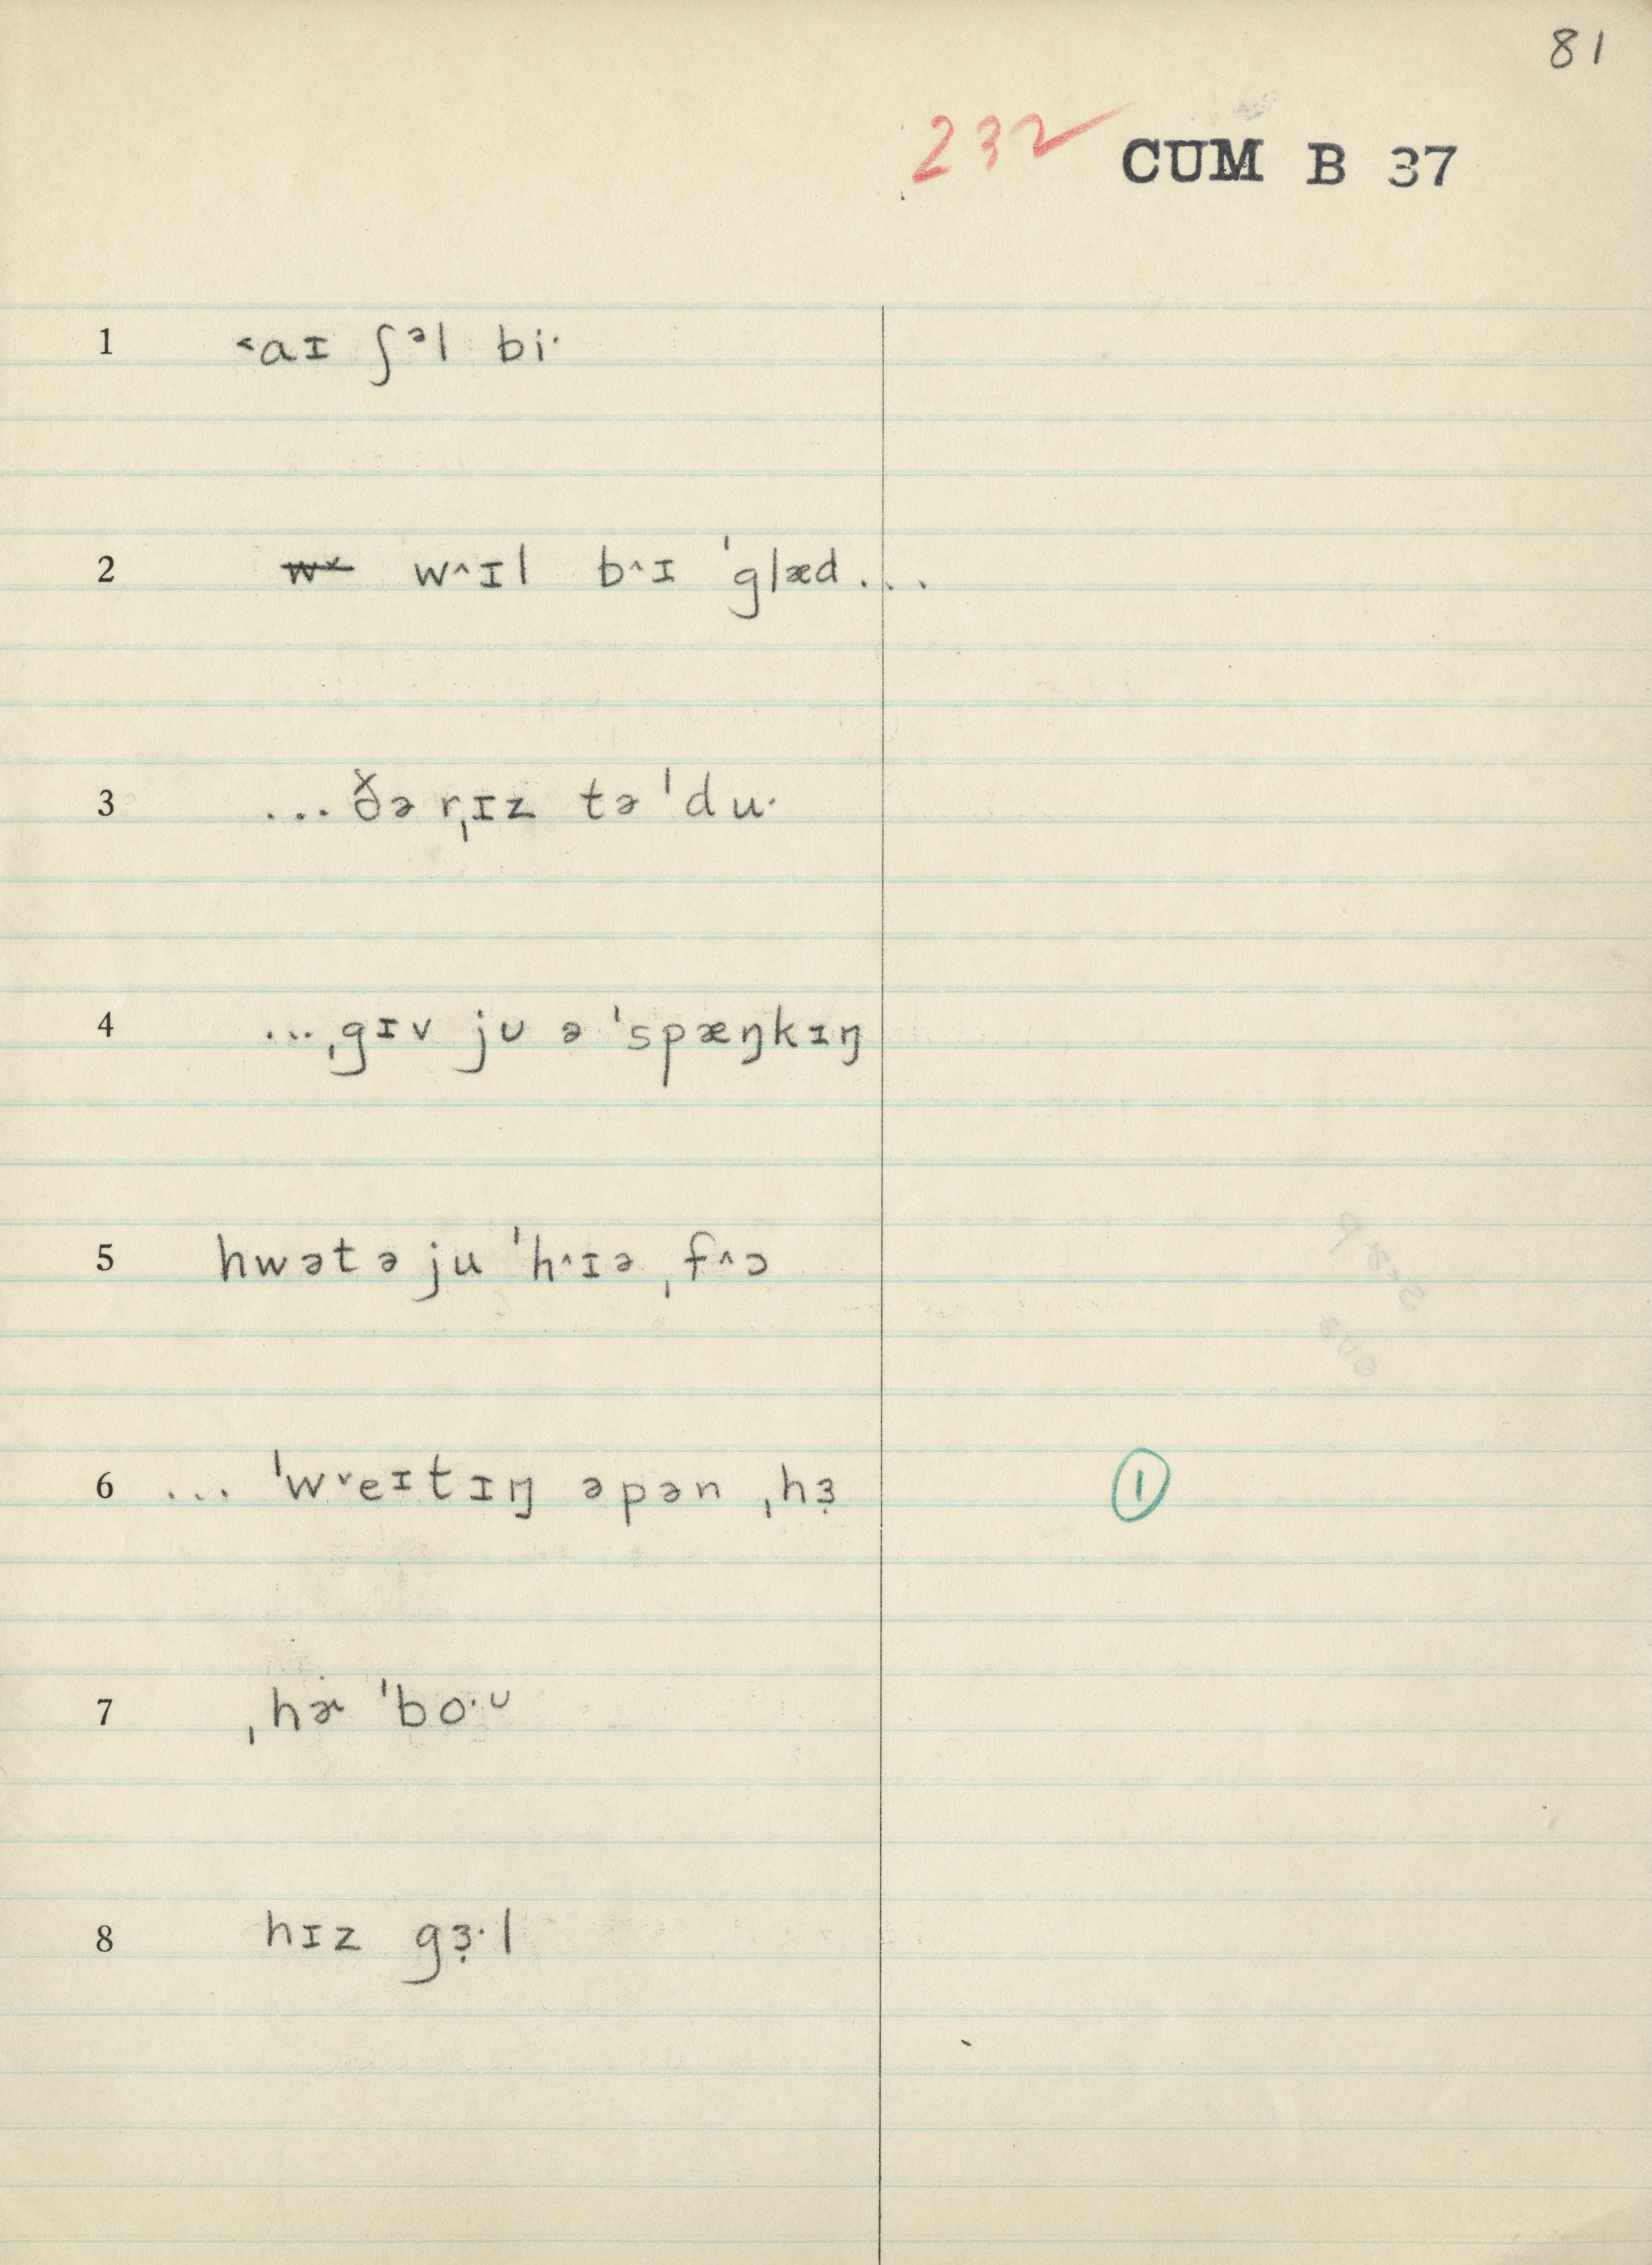 81
232 CUM B 37
1 ˂aɪ ʃᵊl bi·
2 w˅ w˄ɪl b˄ɪ ˈglæd...
3 ...ðə rˌɪz tə ˈdu·
4 ...ˌgɪv jᴜ ə ˈspæŋkɪŋ
5 hwət ə ju ˈh˄ɪə ˌf˄ɔ
6 ... ˈw˅eᶦtɪŋ əpən ˌhɜ̣
①
7 ˌhɚ̇ ˈbo·ᶷ
8 hɪz gɜ̣·l